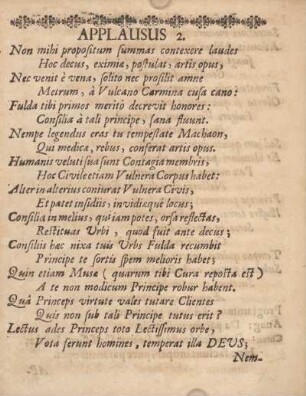 APPLAUSUS 2.
Non mihi propositum summas contexere laudes
Hoc decus, eximiæ, postulat, artis opus,
Nec venit è vena, solito nec prosilit amne
Metrum, à Vulcano Carmina cusa cano:
Fulda tibi primos meritò decrevit honores:
Consilia à tali principe, sana fluunt.
Nempe legendus eras tu tempestate Machaon,
Qui medica, rebus, conferat artis opus.
Humanis veluti sua sunt Contagia membris,
Hoc Civile etiam Vulnera Corpus habet:
Alter in alterius coniurat Vulnera Civis,
Et patet insidiis, invidiæque locus;
Consilia in melius, qui iam potes, orsa reflectas,
Restituas Urbi, quod fuit ante decus;
Consiliis hæc nixa tuis Urbs Fulda recumbit
Principe te sortis spem melioris habet;
Quin etiam Musæ (quarum tibi Cura reposta est)
A te non modicum Principe robur habent.
Quâ Princeps virtute vales tutare Clientes
Quis non sub tali Principe tutus erit?
Lectus ades Princeps toto Lectissimus orbe,
Vota ferunt homines, temperat illa DEUS;
Nem-